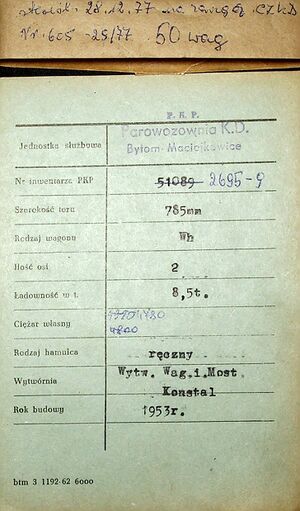 28.12.77 na
Nr. 605-25/77 50 wag
P. K. P.
Jednostka służbowa Parowozownia K.D.
Bytom-Maciejkowice
Nr inwentarza PKP 51089 2695-9
Szerokość toru 785mm
Rodzaj wagonu Wh
Ilość osi 2
Ładowność w t. 8,5t.
Ciężar własny 4800
Rodzaj hamulca ręczny
Wytwórnia Wytw. Wag.i.Most.
Konstal
Rok budowy 1953r.
btm 3 1192-62 6000